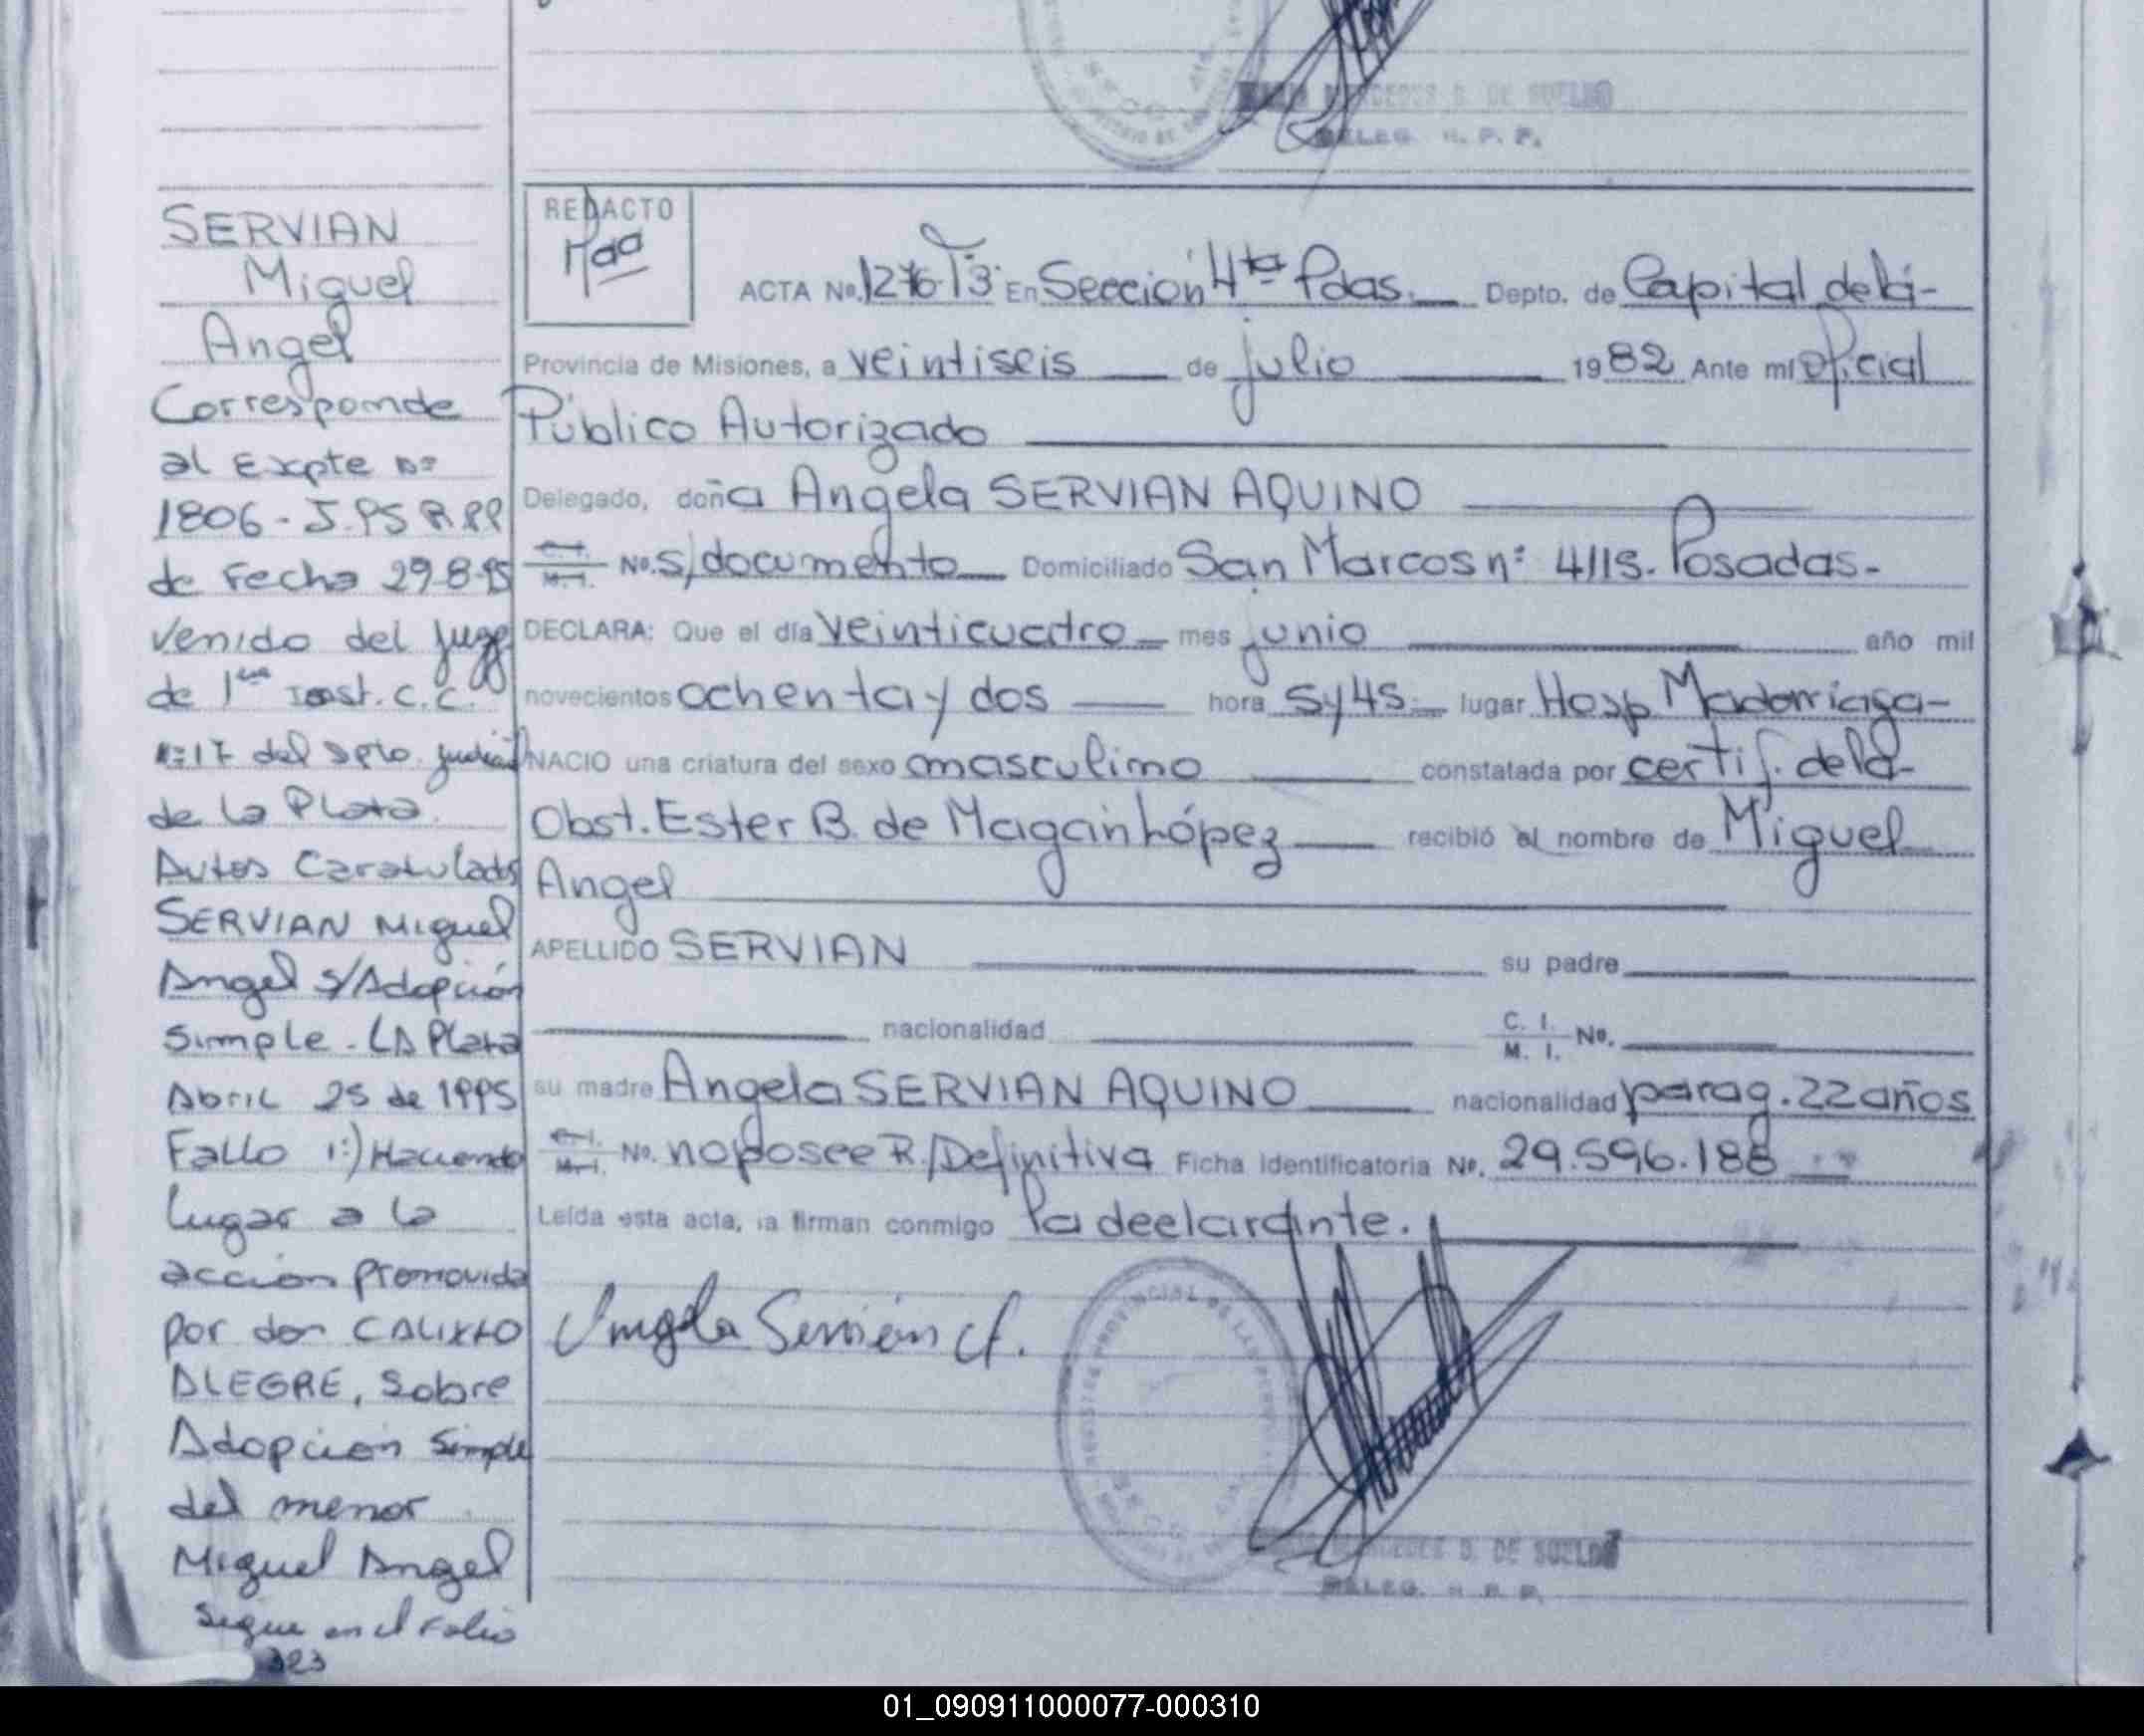 DE SUELDO
DELEG. R. P. P.
SERVIAN
Miguel
Angel
Corresponde
al Expte nº
1806-J.PS R.PP
de Fecha 29-8-95
venido del Juzg
de 1ra Inst. C.C.
nº17 del Dpto. Judicial
de la Plata.
Autos Caratulados
SERVIAN Miguel
Angel s/Adopción
Simple. LA Plata
Abril 25 de 1995
Fallo 1:) Haciendo
lugar a la
accion promovida
por don CALIXTO
ALEGRE, Sobre
Adopcion Simple
del menor
Miguel Angel
Sigue en el Folio
323
REDACTO
ACTA No. 1276 T3 En Sección 4ta Pdas. Depto. de Capital de la-
Provincia de Misiones, a veintiseis de julio 1982 Ante mí Oficial
Público Autorizado
Delegado, doña Angela SERVIAN AQUINO
C.I. M.I. No. s/documento Domiciliado San Marcos nº 4115. Posadas.-
DECLARA: Que el día veinticuatro mes junio año mil
novecientos ochenta y dos hora 5y45 lugar Hosp Madarriaga-
NACIO una criatura del sexo masculino constatada por certif. de la-
Obst. Ester B. de Magain López recibió el nombre de Miguel
Angel
APELLIDO SERVIAN su padre
nacionalidad C. I. M. I. No.
su madre Angela SERVIAN AQUINO nacionalidad parag. 22 años
C.I. M.I. No. no posee R./Definitiva Ficha Identificatoria No. 29.596.188
Leída esta acta, la firman conmigo la declarante.
Angela Servián
DE SUELDO
DELEG. R. P. P.
01_090911000077-000310